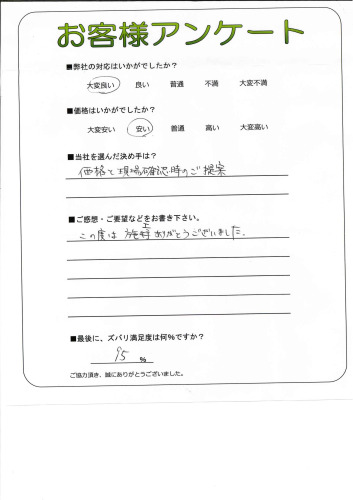 お客様アンケート
■弊社の対応はいかがでしたか?
大変良い 良い 普通 不満 大変不満
■価格はいかがでしたか?
大変安い 安い 普通 高い 大変高い
■当社を選んだ決め手は?
価格と現場確認時のご提案
■ご感想・ご要望などをお書き下さい。
この度は施工ありがとうございました。
■最後に、ズバリ満足度は何%ですか?
95 %
ご協力頂き、誠にありがとうございました。